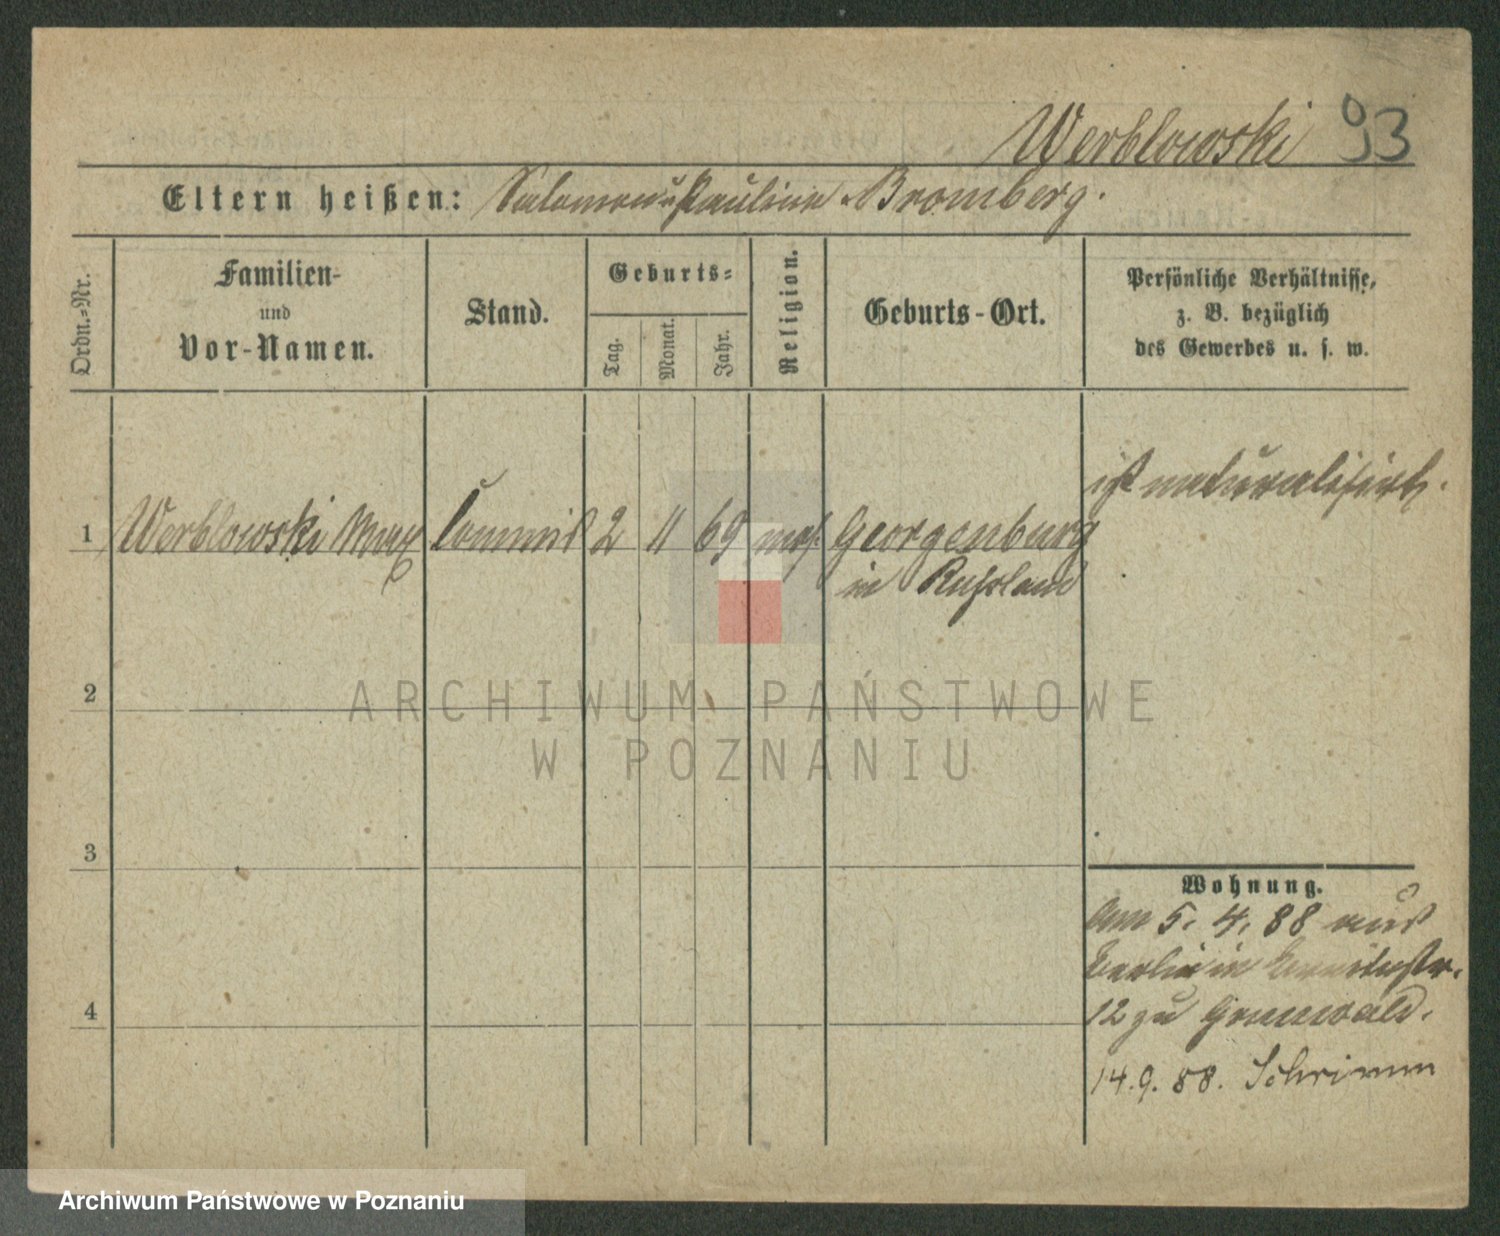 Werblowski 93
Eltern heißen: Salomon u Pauline Bromberg.
Ordn.-Nr.
Familien-
und
Vor-Namen.
Stand.
Geburts-
Tag.
Monat.
Jahr.
Religion.
Geburts-Ort.
Persönliche Verhältnisse,
z. B. bezüglich
des Gewerbes u. s. w.
1 Werblowski Max Commis 2 11 69 mos. Georgenburg
in Russland
ist naturalisirt.
2
3
4
Wohnung.
Am 5. 4. 88 aus
Berlin in
12 zu Grunwald.
14. 9. 88. Schrimm
ARCHIWUM PAŃSTWOWE
W POZNANIU
Archiwum Państwowe w Poznaniu